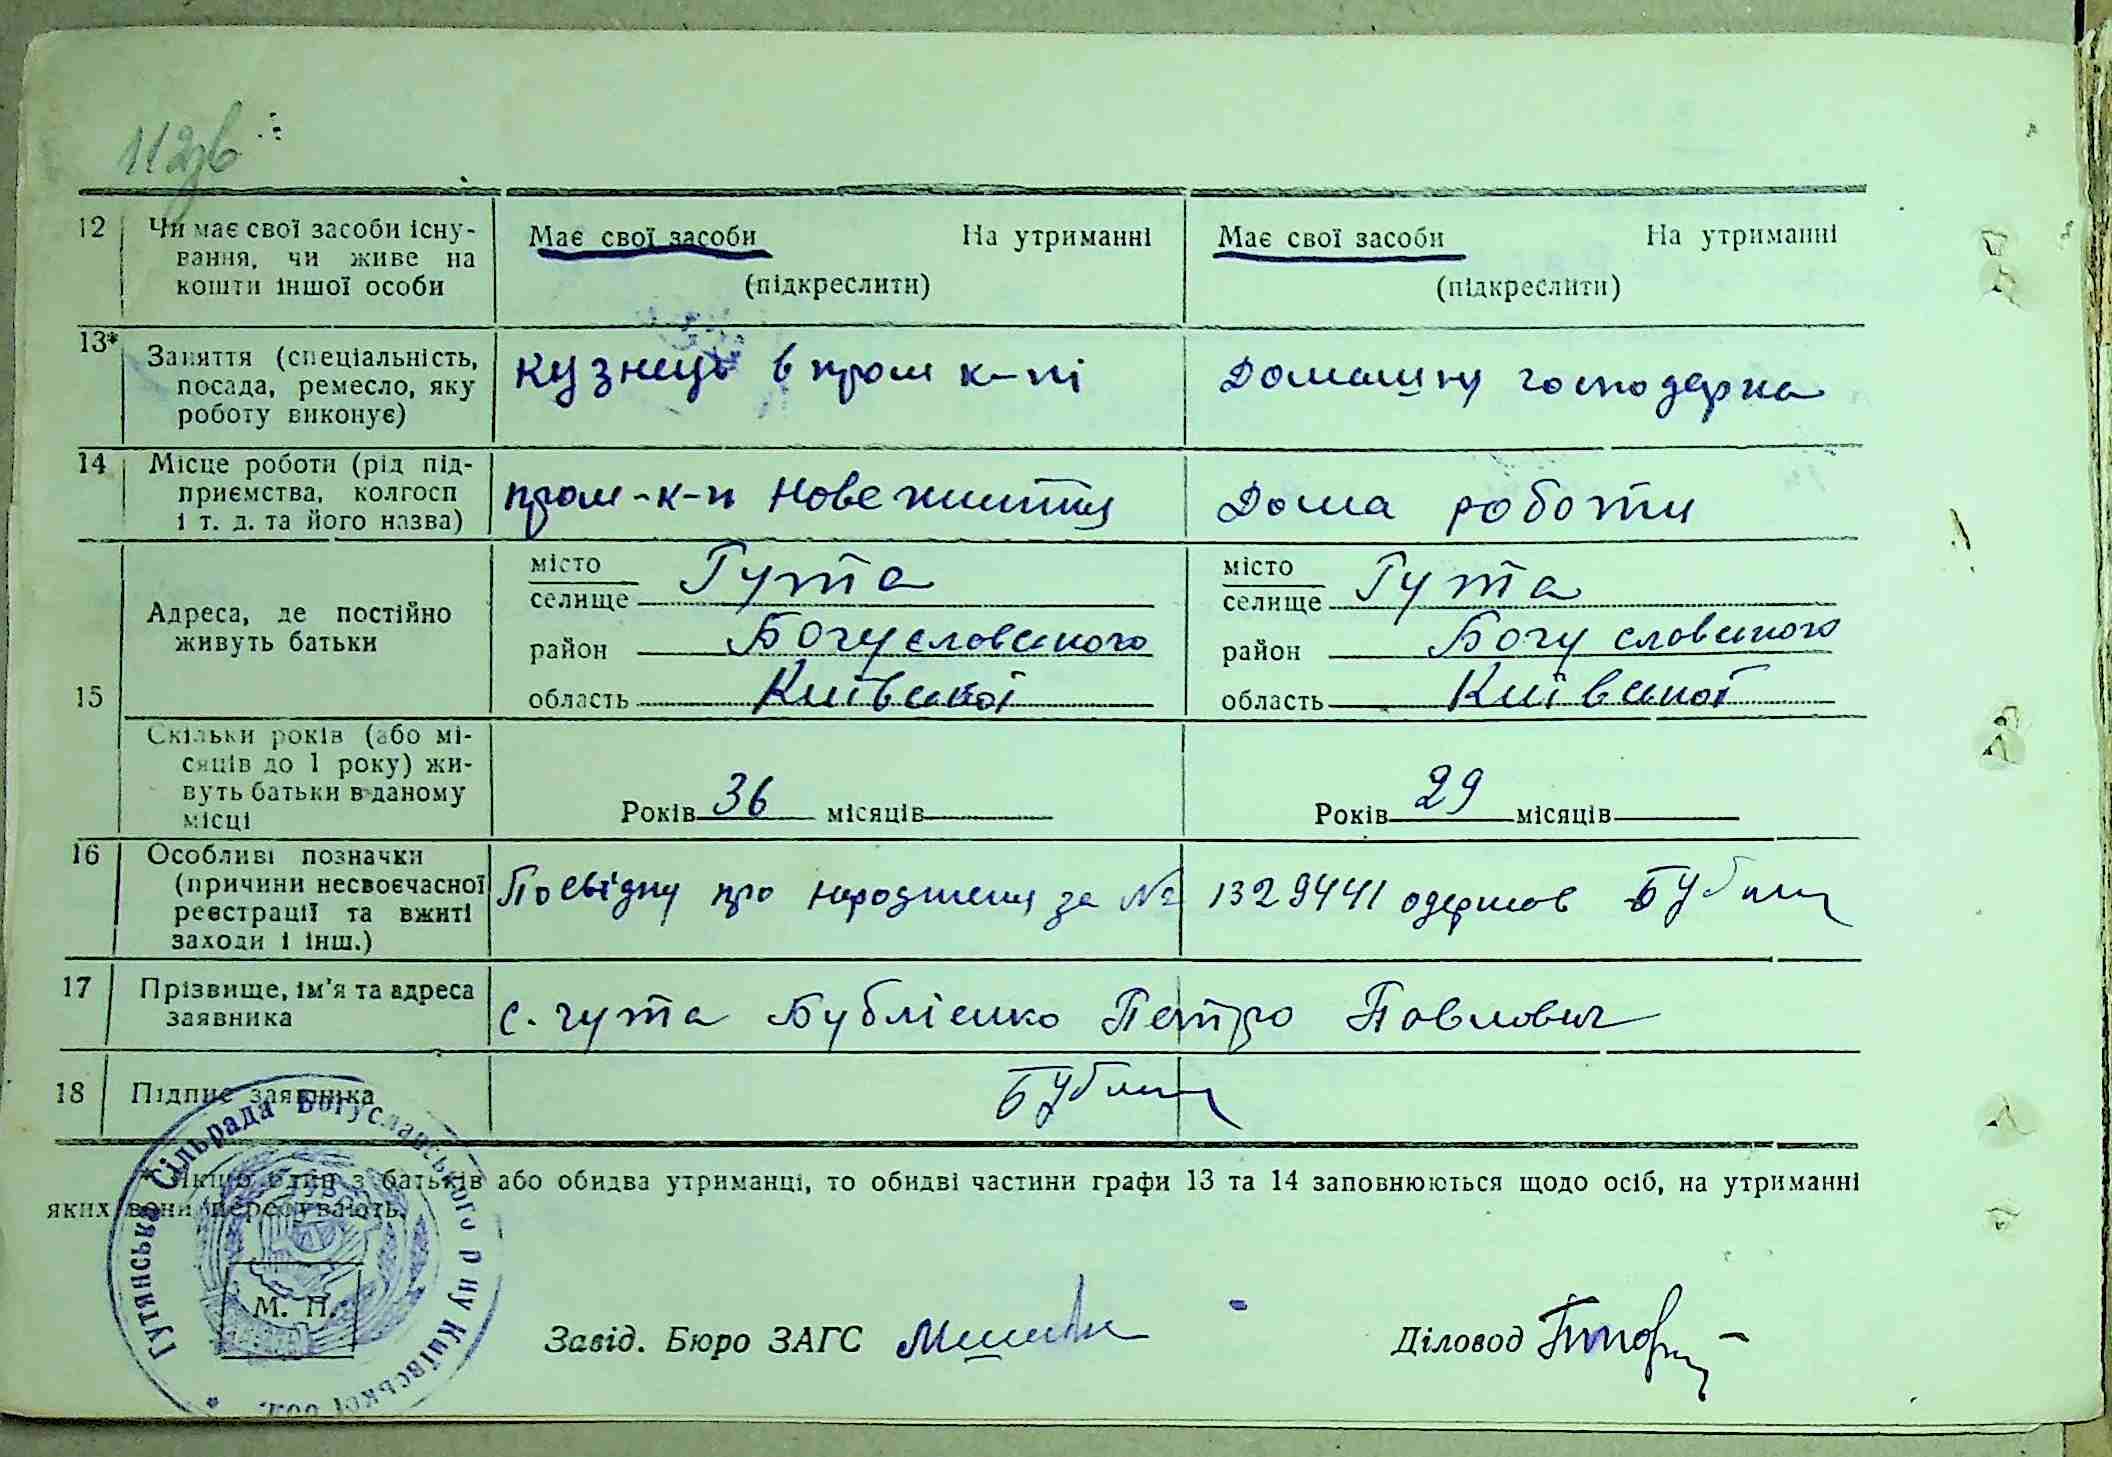 112зв
12 Чи має свої засоби існу-
вання, чи живе на
кошти іншої особи
Має свої засоби На утриманні
(підкреслити)
Має свої засоби На утриманні
(підкреслити)
13* Заняття (спеціальність,
посада, ремесло, яку
роботу виконує)
кузнець в пром к-пі
Домашну господарка
14 Місце роботи (рід під-
приємства, колгосп
і т. д. та його назва)
пром-к-п Нове життя
Дома роботи
15 Адреса, де постійно
живуть батьки
місто
селище Гута
район Богуславського
область Київської
місто
селище Гута
район Богуславського
область Київської
Скільки років (або мі-
сяців до 1 року) жи-
вуть батьки в даному
місці
Років 36 місяців
Років 29 місяців
16 Особливі позначки
(причини несвоєчасної
реєстрації та вжиті
заходи і інш.)
Посвідку про народження за № 1329441 одержав
17 Прізвище, ім'я та адреса
заявника
с. Гута Бублієнко Петро Павлович
18 Підпис заявника
* Якщо один з батьків або обидва утриманці, то обидві частини графи 13 та 14 заповнюються щодо осіб, на утриманні
яких вони перебувають.
Гутянська Сільрада Богуславського р ну Київської обл.
УРСР
М. П.
Завід. Бюро ЗАГС
Діловод